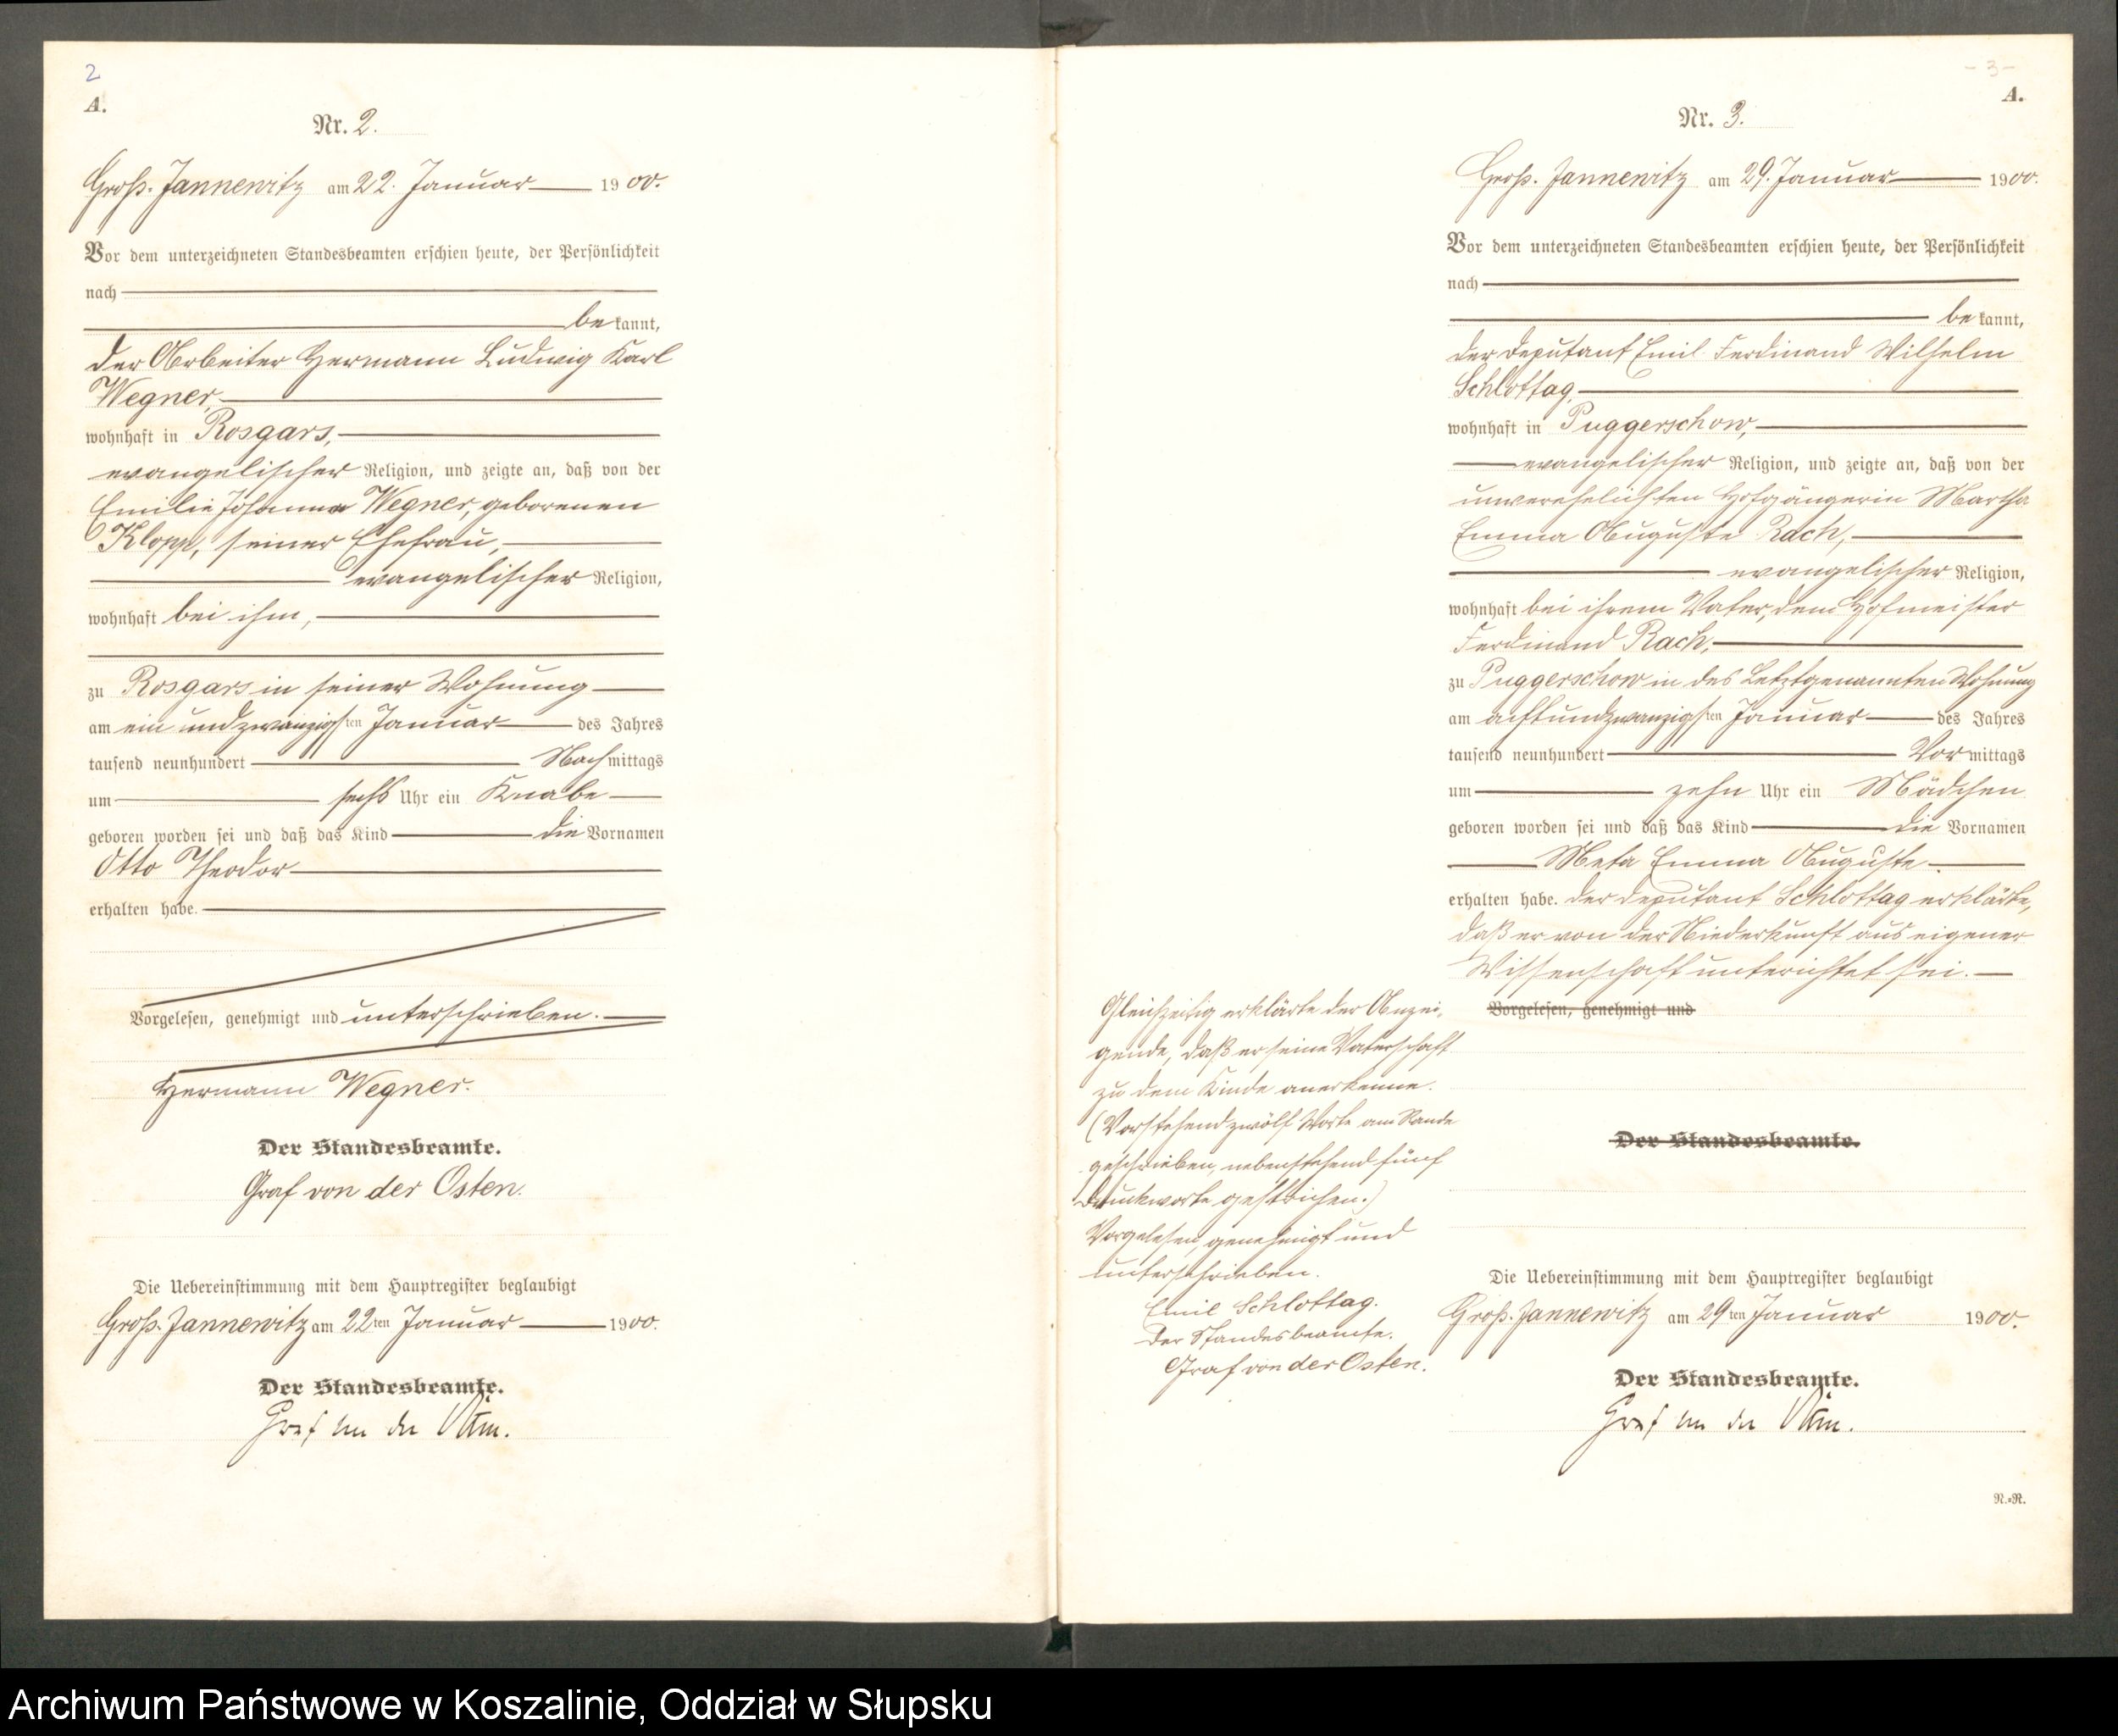 2
A.
Nr. 2.
Groß. Jannewitz am 22. Januar 1900.
Vor dem unterzeichneten Standesbeamten erschien heute, der Persönlichkeit
nach
be kannt,
der Arbeiter Hermann Ludwig Karl
Wegner,
wohnhaft in Rosgars,
evangelischer Religion, und zeigte an, daß von der
Emilie Johanna Wegner, geborenen
Klopp, seiner Ehefrau,
evangelischer Religion,
wohnhaft bei ihm,
zu Rosgars in seiner Wohnung
am ein und zwanzigsten Januar des Jahres
tausend neunhundert Nachmittags
um sechs Uhr ein Knabe
geboren worden sei und daß das Kind die Vornamen
Otto Theodor
erhalten habe.
Vorgelesen, genehmigt und unterschrieben.
Hermann Wegner.
Der Standesbeamte.
Graf von der Osten.
Die Uebereinstimmung mit dem Hauptregister beglaubigt
Groß. Jannewitz am 22ten Januar 1900.
Der Standesbeamte.
Graf von der Osten.
- 3 -
A.
Nr. 3.
Groß. Jannewitz am 29. Januar 1900.
Vor dem unterzeichneten Standesbeamten erschien heute, der Persönlichkeit
nach
be kannt,
der Deputant Emil Ferdinand Wilhelm
Schlottag,
wohnhaft in Puggerschow,
evangelischer Religion, und zeigte an, daß von der
unverehelichten Hofgängerin Martha
Emma Auguste Rach,
evangelischer Religion,
wohnhaft bei ihrem Vater, dem Hofmeister
Ferdinand Rach,
zu Puggerschow in des Letztgenannten Wohnung
am achtundzwanzigsten Januar des Jahres
tausend neunhundert Vormittags
um zehn Uhr ein Mädchen
geboren worden sei und daß das Kind die Vornamen
Meta Emma Auguste
erhalten habe. Der Deputant Schlottag erklärte,
daß er von der Niederkunft aus eigener
Wissenschaft unterichtet sei.
Vorgelesen, genehmigt und
Gleichzeitig erklärte der Anzei-
gende, daß er seine Vaterschaft
zu dem Kinde anerkenne.
(Vorstehend zwölf Worte am Rande
geschrieben, nebenstehend fünf
Druckworte gestrichen.)
Vorgelesen, genehmigt und
unterschrieben.
Emil Schlottag.
Der Standesbeamte.
Graf von der Osten.
Der Standesbeamte.
Die Uebereinstimmung mit dem Hauptregister beglaubigt
Groß. Jannewitz am 29ten Januar 1900.
Der Standesbeamte.
Graf von der Osten.
N.=R.
Archiwum Państwowe w Koszalinie, Oddział w Słupsku